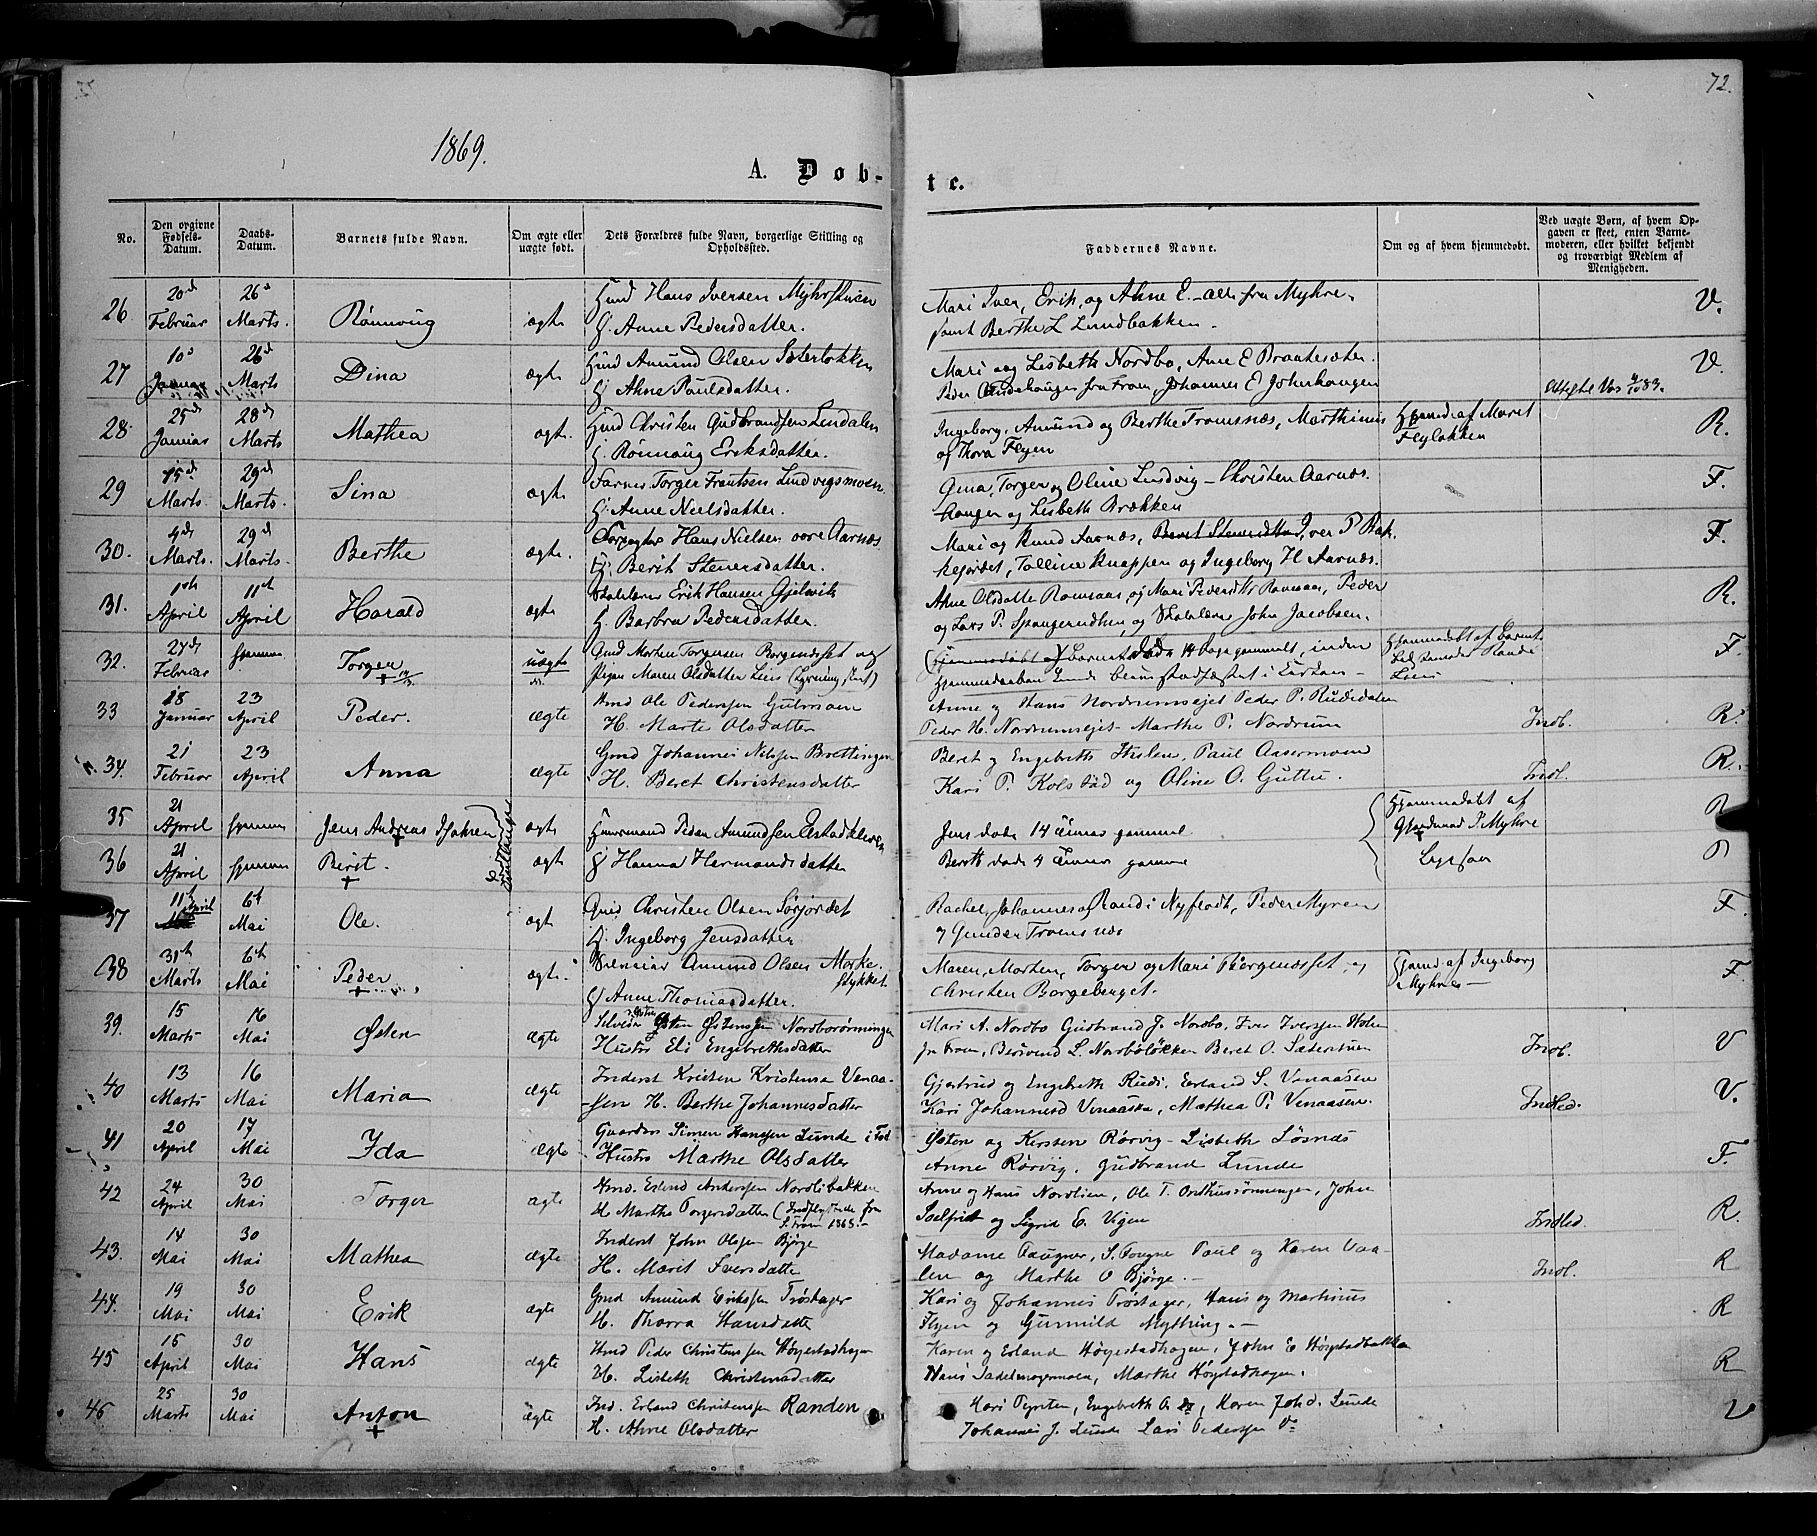 72.
1869.
A. Døb-te.
No.
Den opgivne Fødsels-Datum.
Daabs-Datum.
Barnets fulde Navn.
Om ægte eller uægte født.
Dets Forældres fulde Navn, borgerlige Stilling og Opholdssted.
Faddernes Navne.
Om og af hvem hjemmedøbt.
Ved uægte Børn, af hvem Op-
gaven er skeet, enten Barne-
moderen, eller hvilket bekjendt
og troværdigt Medlem af
Menigheden.
26 20d Februar 26d Marts. Rønnoug ægte Hmd Hans Iversen
H. Anne Pedersdatter.
Mari Iver, Erik, og Ahne E. alle fra Myhre,
samt Berthe L Lundbakken. V.
27 10d Januar 26d Marts Dina ægte Hmd Amund Olsen Sæterløkken
H. Ahne Paulsdatter.
Mari og Lisbeth Nordbø, Ane E Braatesæter
Peder fra From, Johannes E Johnhaugen V.
Attest 83.
28 25d Januar 28d Marts Mathea ægte. Hmd Christen Gudbrandsen Lindalen
H. Rønnoug Eriksdatter.
Ingeborg, Amund og Berthe Tromsnæs, Marthinus
og Thora Flyen
Hjemd. af Maret
Flyløkken R.
29 15d Marts. 29d Marts. Sina ægte Torger Frantsen Lundvigsmoen
H. Anne Nielsdatter.
Gina, Torger og Oline Lundvig - Christen Aarnæs.
Haugen og Lisbeth Brækken F.
30. 9d Marts. 29d Marts. Berthe ægte. Forpagter Hans Nielsen øvre Aarnæs
H. Berit Stenersdatter.
Mari og Knud Aarnæs, Iver P Bak-
kejordet, Tolline Knappen og Ingeborg H Aarnæs. F.
31. 1ste April 11te April Harald ægte Skolelærer Erik Hansen Gjelvik
H. Barbra Pedersdatter.
Ahne Olsdatter Ramsaas, og Mari Pedersdtr Ramsaas, Peder
og Lars P. Spangrudlien, og Skolelærer John Jacobsen. R.
32. 27d Februar hjemme Torger uægte Gmd Morten Torgersen Borgenæsset og
Pigen Maren Olsdatter Lien
Barnet døde 14 Dage gammelt, inden
Hjemmedaaben kunde blive stadfæstet i Kirken -
Hjemmedøbt af
Lien F.
33 18 Januar 23 April Peder. Ægte Hmd Ole Pedersen
H. Marte Olsdatter
Anne og Hans Nordrumsejet Peder P. Rudidalen
Peder H. Nordrumsejet - Marthe P. Nordrum Indl. R.
34. 21 Februar 23 April Anna Ægte Gmd Johannes Nilsen Brettingen
H. Beret Christensdatter
Beret og Engebreth Huslen, Paul Aasermoen
Kari P. Kolstad og Oline O. Guttu. Indl. R.
35 21 April hjemme Jens Andreas ægte Huusmand Peder Amundsen Eistadkleven
Jens døde 14 Timer gammel
Hjemmedøbt af
P. Myhre R
36 21 April hjemme Berit. ægte H Hanna Hermandsdatter
Berit døde 4 Timer gammel
Tvillinger
37 11te April 6te Mai Ole. ægte Gmd Christen Olsen Sørjordet
H. Ingeborg Jensdatter
Rachel, Johannes og Randi Nyflødt, Peder Myren
og Gunder Tromsnæs F.
38 31te Marts 6te Mai Peder ægte. Amund Olsen Morke-
stykket
H Anne Thomasdatter.
Maren, Morten, Torger og Mari Borgenæsset, og
Christen Borgeberget.
Hjemd af Ingeborg
Myhre F
39. 15 Marts 16 Mai Østen Ægte Østen Østensen Nordborønningen
Hustro Eli Engebrethsdatter
Mari A. Nordbo Gudbrand J. Nordbo, Iver Iversen Holen
fr. From, L. Nordboløkken Beret O. Sæterstuen Indl. V
40 13 Marts 16 Mai Maria Ægte Inderst Kristen Kristensen Venaa-
sen H. Berthe Johannesdatter
Gjertrud og Engebreth Rudi, Erland S. Venaasen
Kari Johannesd Venaasen, Mathea P. Venaasen. Indled. V.
41 20 April 17 Mai Ida Ægte Gaardm. Simen Hansen Lunde i
Hustro Marthe Olsdatter
Østen og Kersten Rørvig - Lisbeth Løsnæs
Anne Rørvig, Gudbrand Lunde F.
42 24 April 30 Mai Torger ægte Hmd. Erlend Andersen Nordlibakken
H. Marthe Torgersdatter (Indflyttede fra
S. From 1868.-
Anne og Hans Nordlien, Ole T. Onthusrønningen, John
Solfrit og Sigrid E. Vigen Indled. R.
43. 14 Mai 30 Mai Mathea Ægte Inderst John Olsen Bjørge
H. Marit Iversdatter
Madame Faugner, S. Fougner Paul og Karen Vaa-
len og Marthe O Bjørge. - Indl. R
44. 19 Mai 30 Mai Erik Ægte Gmd Amund Eriksen Trøstager
H. Thorra Hansdatter
Kari og Johannes Trøstager, Hans og Martinus
Flyen og Gunnild Mytting. - R
45 15 April 30 Mai Hans Ægte Hmd Peder Christensen Høgestadhagen
H. Lisbeth Christensdatter
Karen og Erland Høgestadhagen, John E Høgstadbakken
Hans Sadelmagermoen, Marthe Høgstadhagen. R
46 25 Marts 30 Mai Anton Ægte Ind. Erland Christensen Randen
H. Ahne Olsdatter
Kari Engebreth A do, Karen Joh d. Lunde
Johannes J. Lunde Lars Pedersen do V